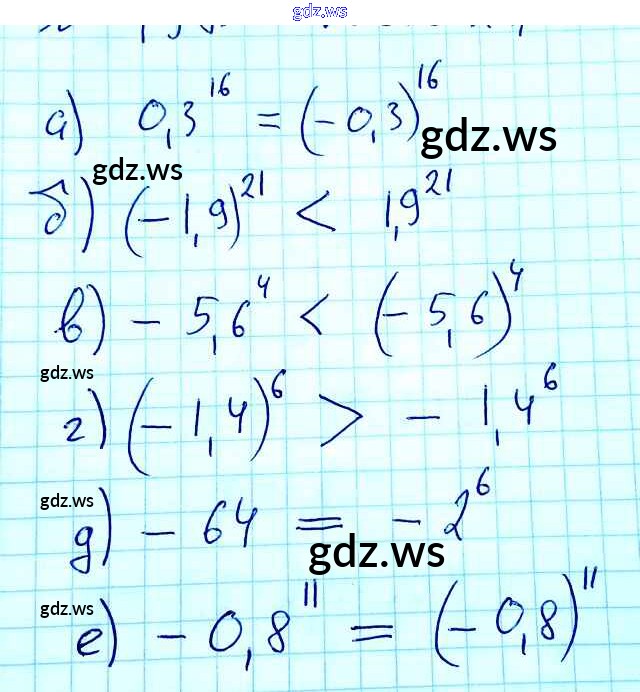 gdz.ws
а) 0,3^16 = (-0,3)^16
gdz.ws
gdz.ws
б) (-1,9)^21 < 1,9^21
в) -5,6^4 < (-5,6)^4
gdz.ws
г) (-1,4)^6 > -1,4^6
gdz.ws
д) -64 = -2^6
gdz.ws
gdz.ws
е) -0,8^11 = (-0,8)^11